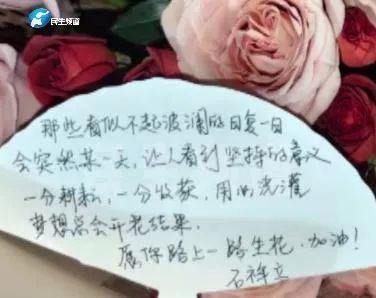 民生频道
那些看似不起波澜的日复一日
会突然某一天,让人看到坚持的意义
一分耕耘,一分收获,用心浇灌
梦想总会开花结果.
愿你路上一路生花.加油!
石祥立